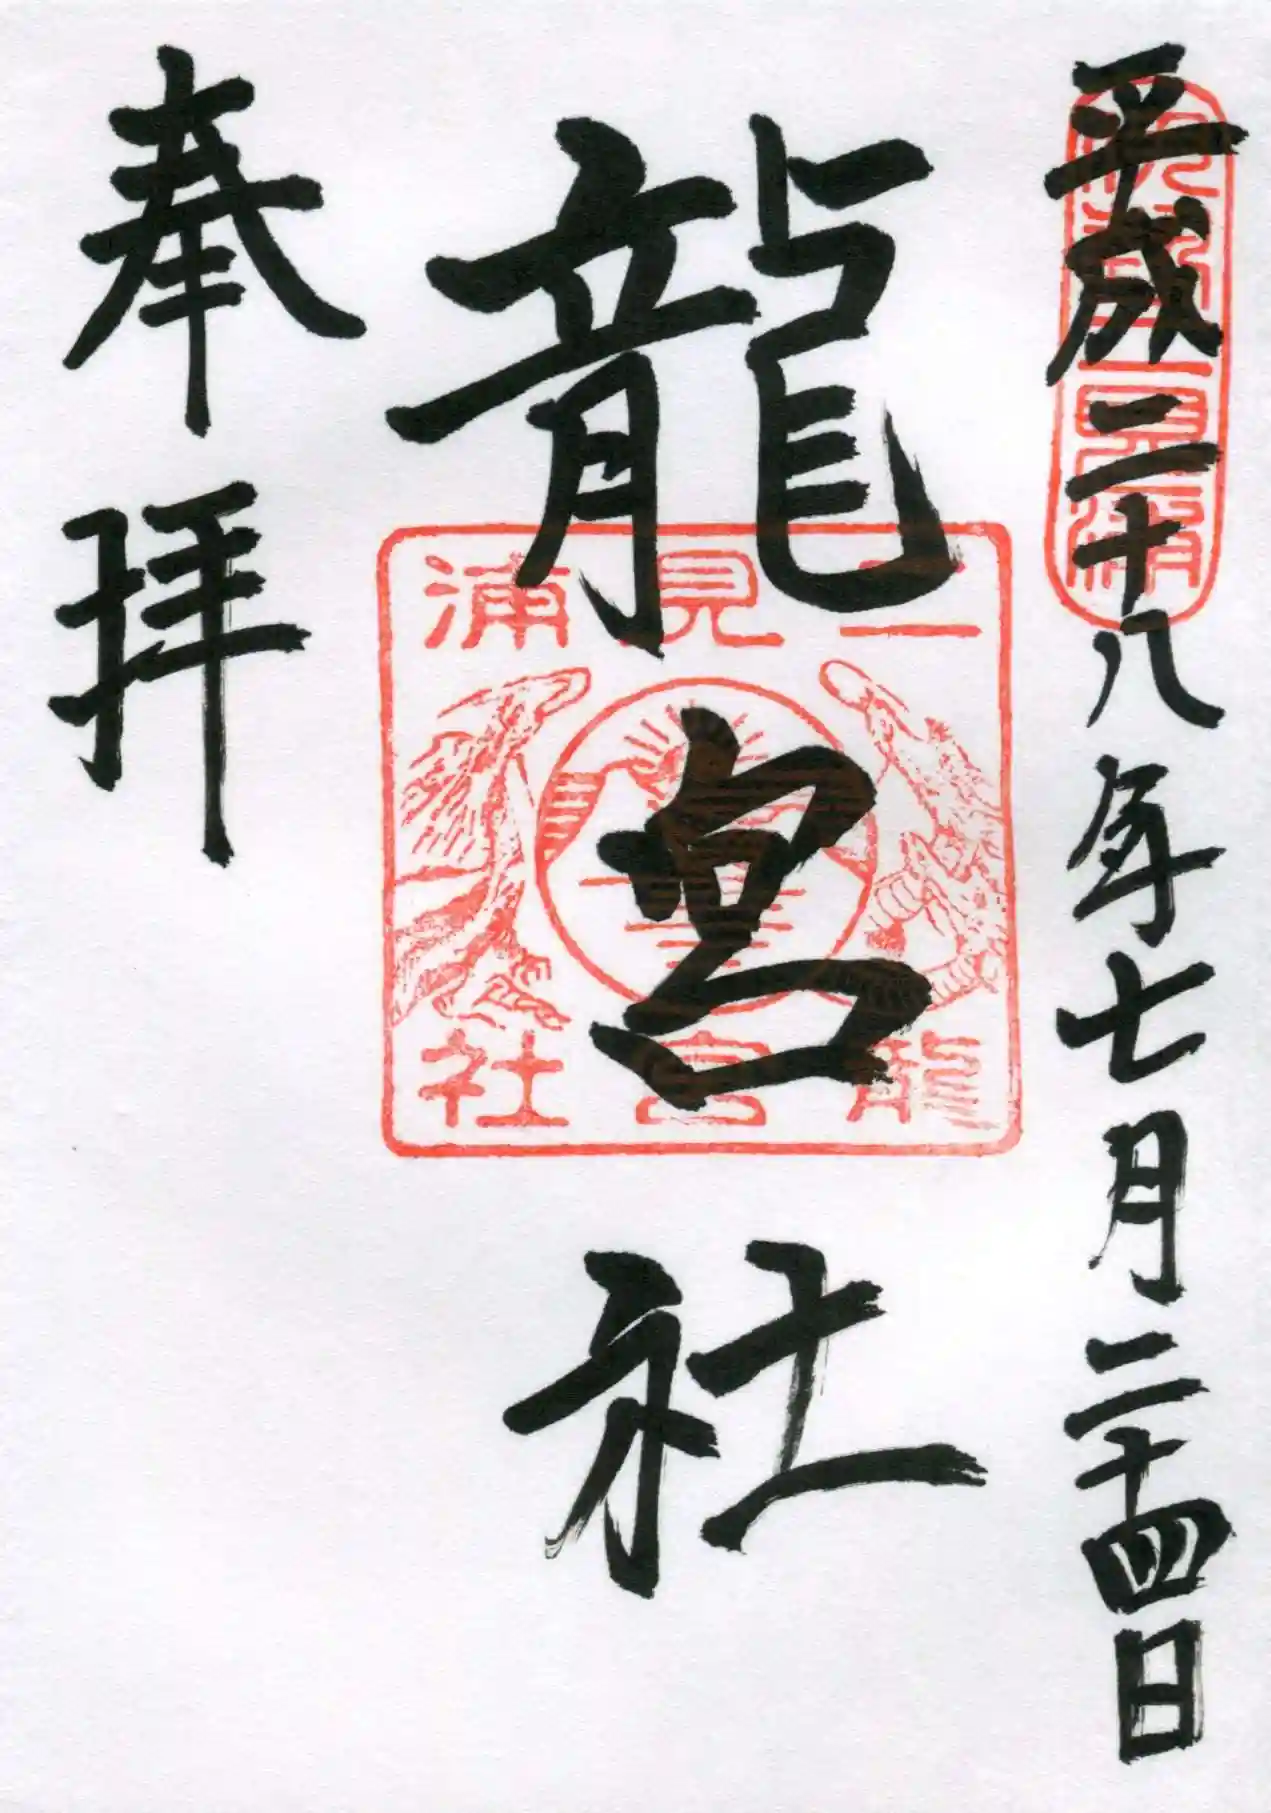 平成二十八年七月二十四日
龍宮社
二見浦
龍宮社
奉拝